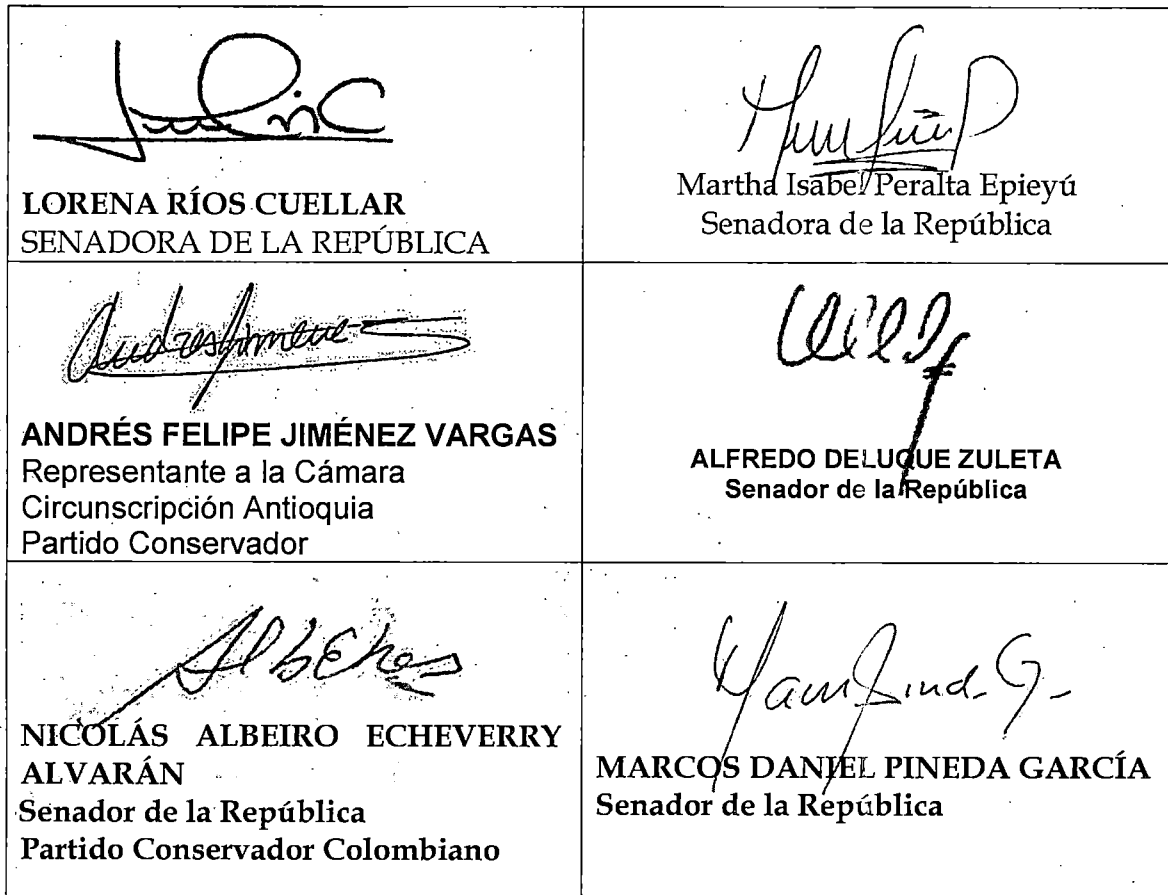 LORENA RÍOS CUELLAR
SENADORA DE LA REPÚBLICA
Martha Isabel Peralta Epieyú
Senadora de la República
ANDRÉS FELIPE JIMÉNEZ VARGAS
Representante a la Cámara
Circunscripción Antioquia
Partido Conservador
ALFREDO DELUQUE ZULETA
Senador de la República
NICOLÁS ALBEIRO ECHEVERRY
ALVARÁN
Senador de la República
Partido Conservador Colombiano
MARCOS DANIEL PINEDA GARCÍA
Senador de la República